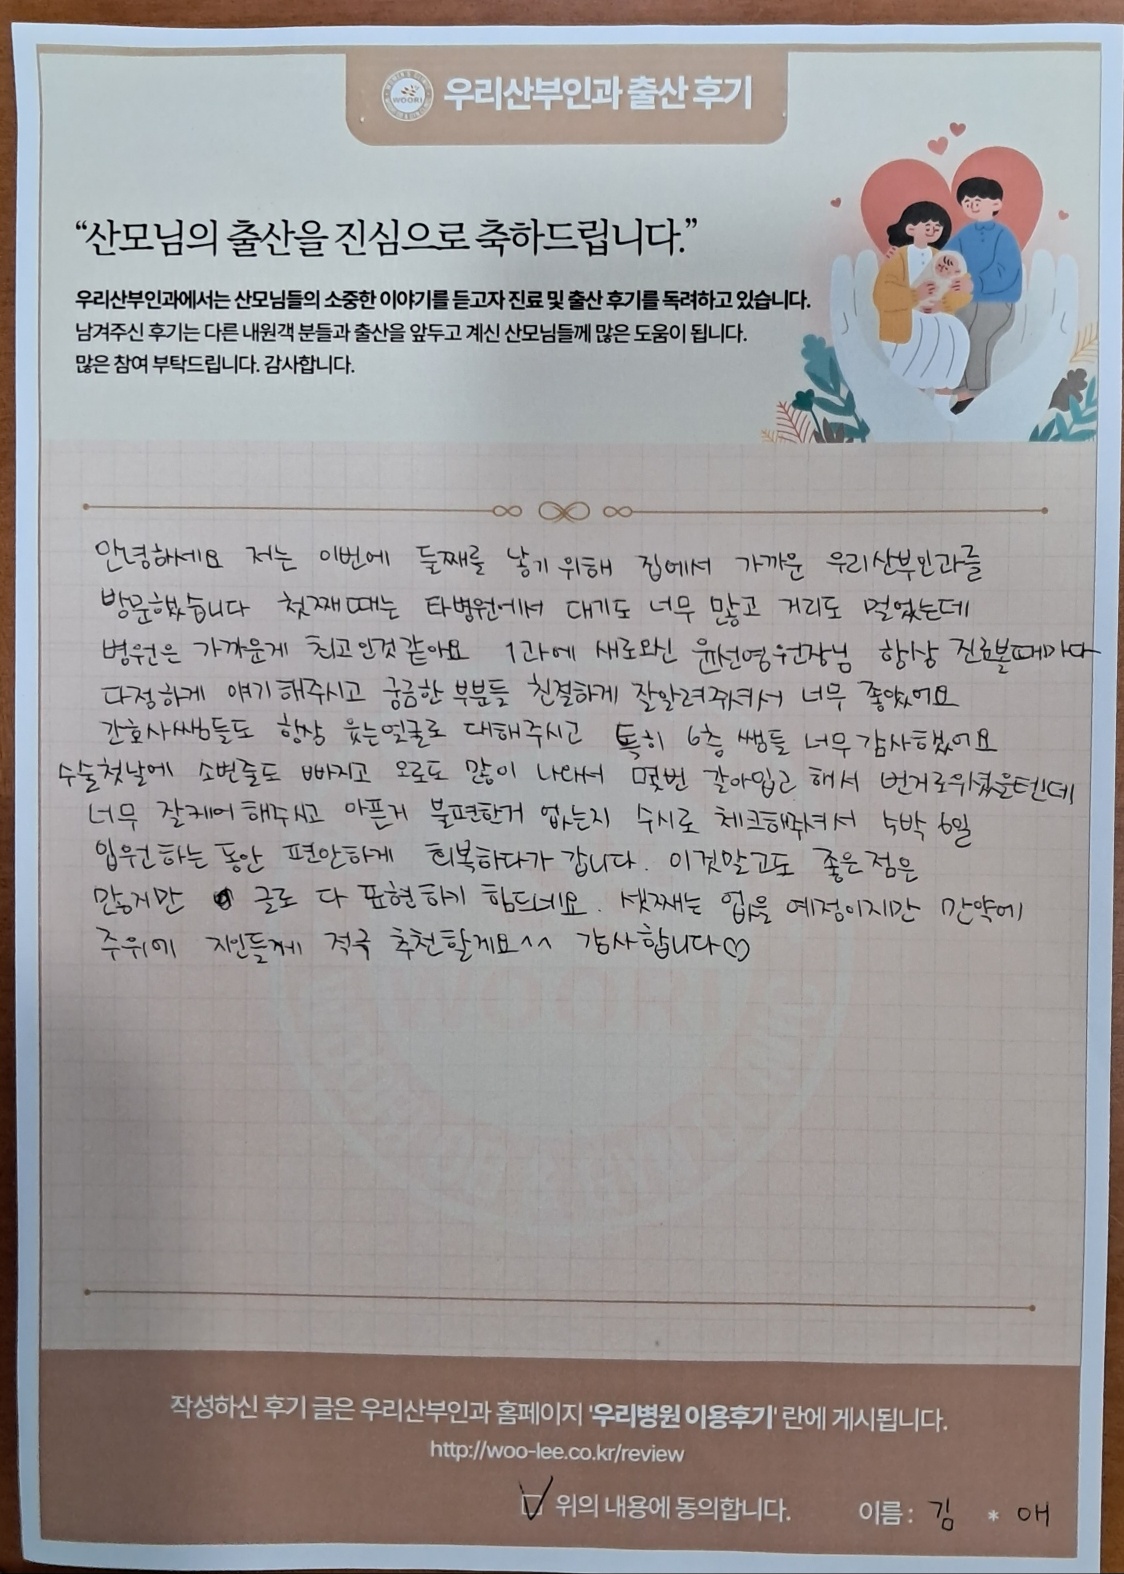 WOORI
우리산부인과 출산 후기
“산모님의 출산을 진심으로 축하드립니다.”
우리산부인과에서는 산모님들의 소중한 이야기를 듣고자 진료 및 출산 후기를 독려하고 있습니다.
남겨주신 후기는 다른 내원객 분들과 출산을 앞두고 계신 산모님들께 많은 도움이 됩니다.
많은 참여 부탁드립니다. 감사합니다.
안녕하세요 저는 이번에 둘째를 낳기 위해 집에서 가까운 우리산부인과를
방문했습니다 첫째때는 타병원에서 대기도 너무 많고 거리도 멀었는데
병원은 가까운게 최고인것같아요 1과에 새로오신 윤선영원장님 항상 진료볼때마다
다정하게 얘기해주시고 궁금한부분들 친절하게 잘알려주셔서 너무 좋았어요
간호사쌤들도 항상 웃는얼굴로 대해주시고 특히 6층 쌤들 너무감사했어요
수술첫날에 소변줄도 빠지고 오로도 많이 나와서 몇번 갈아입고 해서 번거로우셨을텐데
너무 잘케어해주시고 아픈거 불편한거 없는지 수시로 체크해주셔서 5박 6일
입원하는 동안 편안하게 회복하다가 갑니다. 이것말고도 좋은점은
많지만 글로 다 표현하기 힘드네요. 셋째는 없을 예정이지만 만약에
주위에 지인들께 적극 추천할게요^^ 감사합니다♡
작성하신 후기 글은 우리산부인과 홈페이지 '우리병원 이용후기' 란에 게시됩니다.
http://woo-lee.co.kr/review
위의 내용에 동의합니다. 이름 : 김 * 애